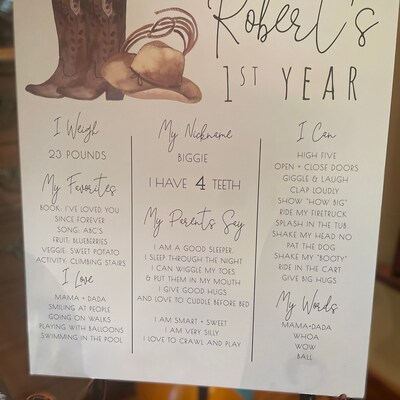 Robert's
1ST YEAR
I Weigh
23 POUNDS
My Favorites
BOOK: I'VE LOVED YOU
SINCE FOREVER
SONG: ABC'S
FRUIT: BLUEBERRIES
VEGGIE: SWEET POTATO
ACTIVITY: CLIMBING STAIRS
I Love
MAMA + DADA
SMILING AT PEOPLE
GOING ON WALKS
PLAYING WITH BALLOONS
SWIMMING IN THE POOL
My Nickname
BIGGIE
I HAVE 4 TEETH
My Parents Say
I AM A GOOD SLEEPER
I SLEEP THROUGH THE NIGHT
I CAN WIGGLE MY TOES
& PUT THEM IN MY MOUTH
I GIVE GOOD HUGS
AND LOVE TO CUDDLE BEFORE BED
I AM SMART + SWEET
I AM VERY SILLY
I LOVE TO CRAWL AND PLAY
I Can
HIGH FIVE
OPEN + CLOSE DOORS
GIGGLE & LAUGH
CLAP LOUDLY
SHOW "HOW BIG"
RIDE MY FIRETRUCK
SPLASH IN THE TUB
SHAKE MY HEAD NO
PAT THE DOG
SHAKE MY "BOOTY"
RIDE IN THE CART
GIVE BIG HUGS
My Words
MAMA+DADA
WHOA
WOW
BALL